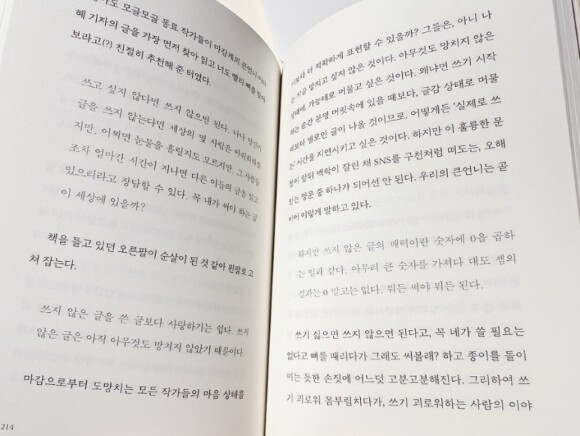 도 모글모글 동료 작가들이 마감계의 큰언니
혜 기자의 글을 가장 먼저 찾아 읽고 너도 빨리
보라고(?) 친절히 추천해 준 터였다.
쓰고 싶지 않다면 쓰지 않으면 된다. 나나 당신이
글을 쓰지 않는다면 세상의 몇 사람은
지만, 어쩌면 눈물을 흘릴지도 모르지만, 그 사람들
조차 얼마간 시간이 지나면 다른 이들의 글을 읽고
있으리라고 장담할 수 있다. 꼭 내가 써야 하는 글
이 세상에 있을까?
책을 들고 있던 오른팔이 순살이 된 것 같아 왼팔로 고
쳐 잡는다.
쓰지 않은 글을 쓴 글보다 사랑하기는 쉽다. 쓰지
않은 글은 아직 아무것도 망치지 않았기 때문이다.
마감으로부터 도망치는 모든 작가들의 마음 상태를
214
더 적확하게 표현할 수 있을까? 그들은, 아니 나
는 지금 망치고 싶지 않은 것이다. 아무것도 망치지 않은
상태에, 가능태로 머물고 싶은 것이다. 왜냐면 쓰기 시작
하는 순간 분명 머릿속에 있을 때보다, 글감 상태로 머물
때보다 별로인 글이 나올 것이므로. 어떻게든 '실제로 쓰
는' 시간을 지연시키고 싶은 것이다. 하지만 이 훌륭한 문
장이 앞뒤 맥락이 잘린 채 SNS를 구천처럼 떠도는, 오해
받는 명문 중 하나가 되어선 안 된다. 우리의 큰언니는 곧
이어 이렇게 말하고 있다.
하지만 쓰지 않은 글의 매력이란 숫자에 0을 곱하
는 일과 같다. 아무리 큰 숫자를 가져다 대도 셈의
결과는 0 말고는 없다. 뭐든 써야 뭐든 된다.
쓰기 싫으면 쓰지 않으면 된다고, 꼭 네가 쓸 필요는
없다고 뼈를 때리다가 그래도 써볼래? 하고 종이를 들이
미는 듯한 손짓에 어느덧 고분고분해진다. 그리하여 쓰
기 괴로워 몸부림치다가, 쓰기 괴로워하는 사람의 이야